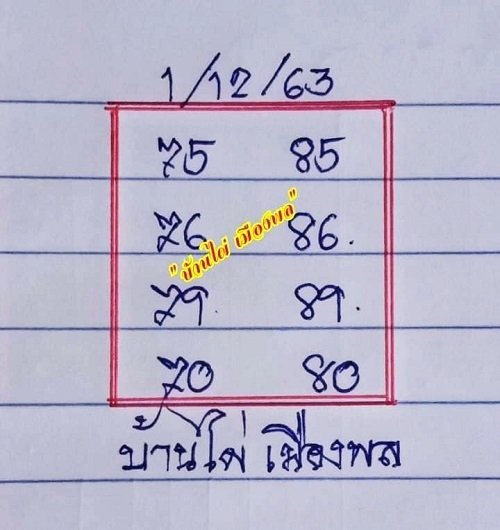 1/12/63
75 85
76 86.
"บ้านไผ่ เมืองพล"
79. 89.
70 80
บ้านไผ่ เมืองพล